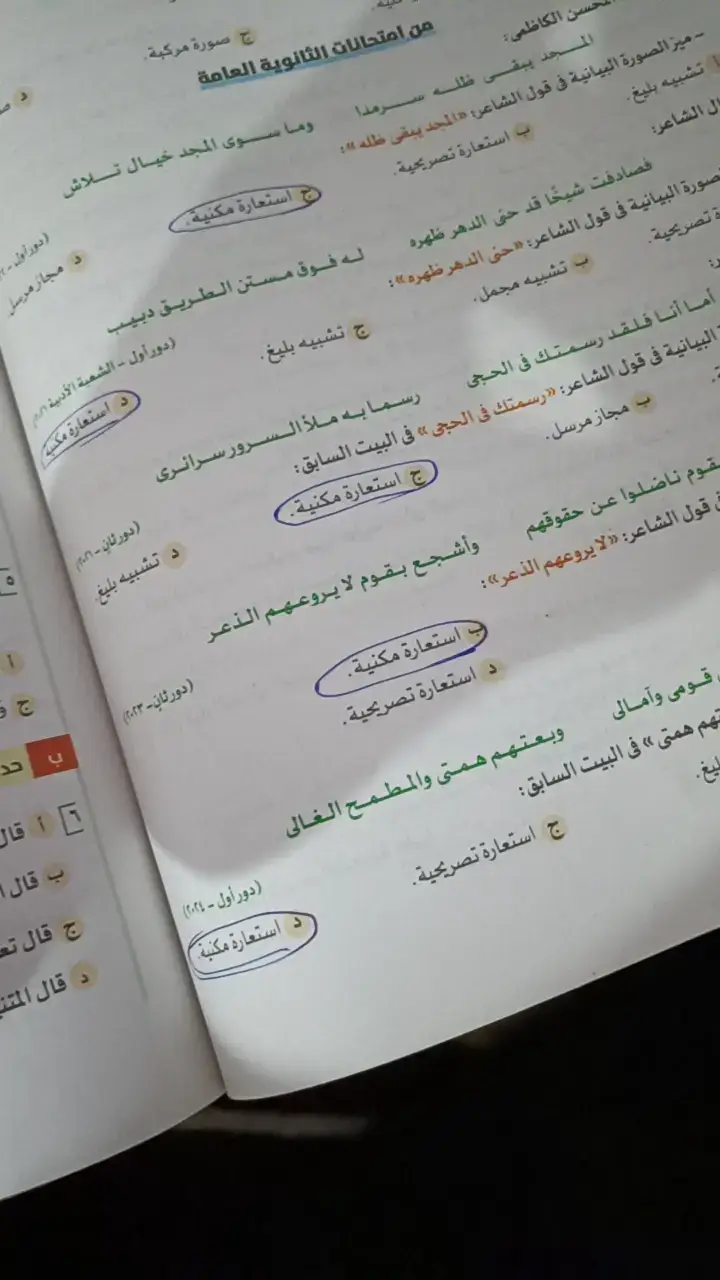 ج صورة مركبة.
من امتحانات الثانوية العامة
د
المجد يبقى ظله سرمدا
وما سوى المجد خيال تلاش
- ميز الصورة البيانية فى قول الشاعر: «المجد يبقى ظله»:
تشبيه بليغ.
ب استعارة تصريحية.
ج استعارة مكنية.
د مجاز مرسل
(دور أول -
الشاعر:
فصادفت شيخًا قد حنى الدهر ظهره
له فوق مستن الطريق دبيب
البيانية فى قول الشاعر: «حنى الدهر ظهره»:
تصريحية.
ب تشبيه مجمل.
ج تشبيه بليغ.
د استعارة مكنية
(دور أول - الشعبة الأدبية
أما أنا فلقد رسمتك فى الحجى
رسما به ملأ السرور سرائرى
البيانية فى قول الشاعر: «رسمتك فى الحجى» فى البيت السابق:
ب مجاز مرسل.
ج استعارة مكنية.
د تشبيه بليغ.
(دور ثانٍ - ٢٠٢١)
بقوم ناضلوا عن حقوقهم
وأشجع بقوم لا يروعهم الذعر
قول الشاعر: «لا يروعهم الذعر»:
ب استعارة مكنية.
د استعارة تصريحية.
(دور ثانٍ - ٢٠٢٣)
قومى وآمالى
وبعتهم همتى والمطمح الغالى
همتى» فى البيت السابق:
ج استعارة تصريحية.
(دور أول - ٢٠٢٤)
د استعارة مكنية.
٥
أ
ج
ب
٦ أ قال
ب قال
ج قال
د قال